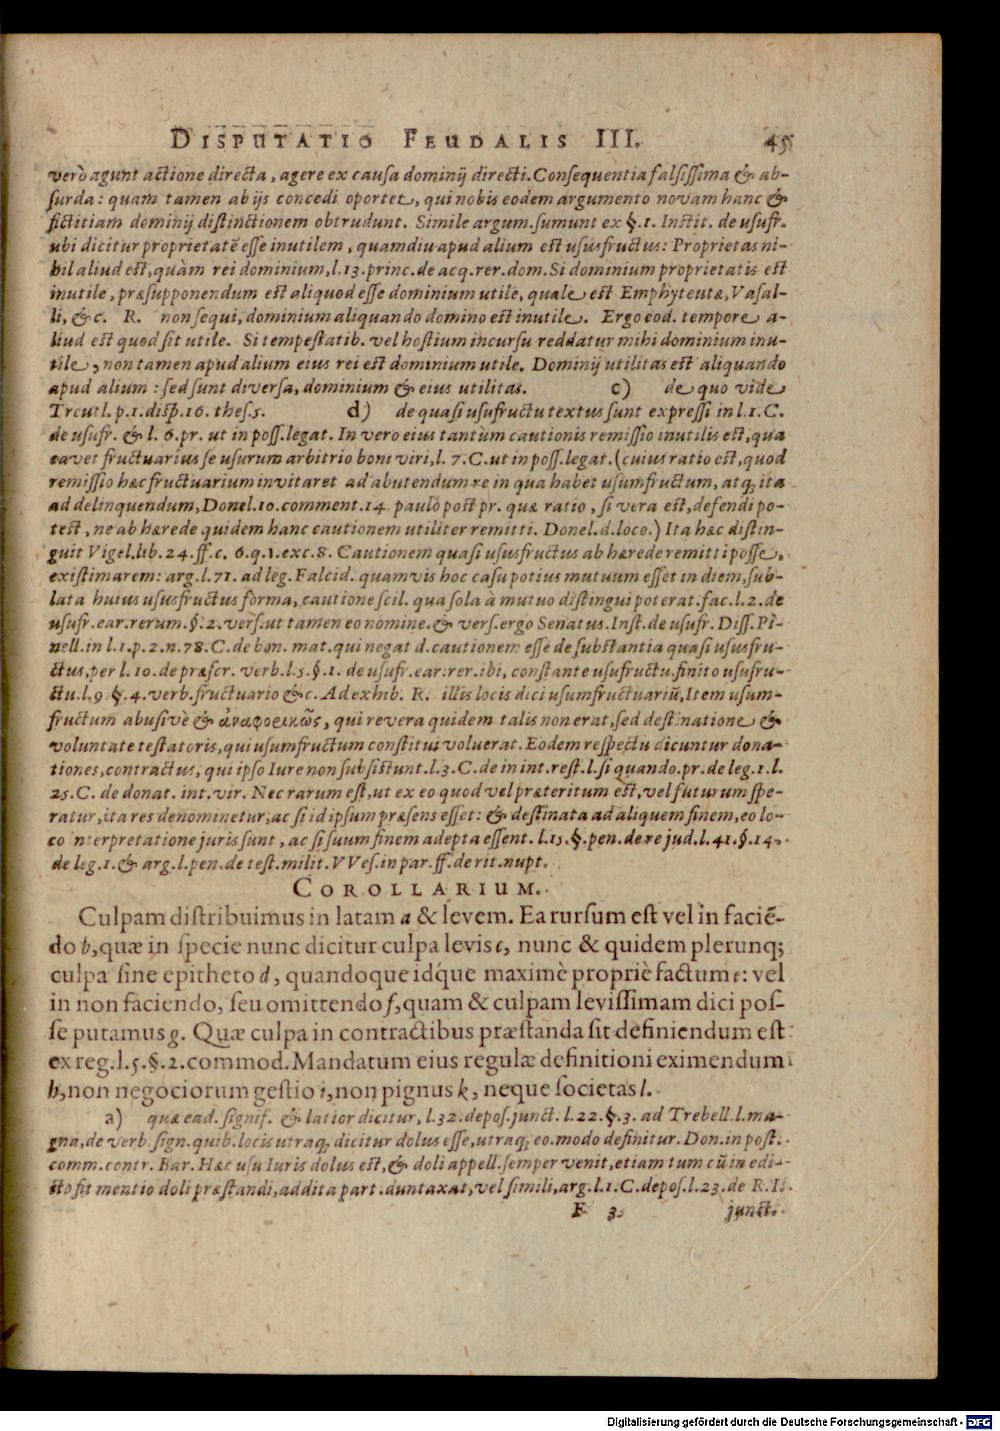 DISPUTATIO FEUDALIS III. 45
verò agunt actione directa, agere ex causa dominij directi. Consequentia falsissima & ab-
surda: quam tamen ab ijs concedi oportet, qui nobis eodem argumento novam hanc &
fictitiam dominij distinctionem obtrudunt. Simile argum. sumunt ex §.1. Instit. de usufr.
ubi dicitur proprietatē esse inutilem, quamdiu apud alium est ususfructus: Proprietas ni-
hil aliud est, quàm rei dominium, l.13. princ. de acq. rer. dom. Si dominium proprietatis est
inutile, præsupponendum est aliquod esse dominium utile, quale est Emphyteutæ, Vasal-
li, &c. R. non sequi, dominium aliquando domino est inutile. Ergo eod. tempore a-
liud est quod sit utile. Si tempestatib. vel hostium incursu reddatur mihi dominium inu-
tile, non tamen apud alium eius rei est dominium utile. Dominij utilitas est aliquando
apud alium: sed sunt diversa, dominium & eius utilitas. c) de quo vide
Treutl. p.1. disp.16. thes.5. d) de quasi usufructu textus sunt expressi in l.1. C.
de usufr. & l. 6. pr. ut in poss. legat. In vero eius tantùm cautionis remissio inutilis est, qua
cavet fructuarius se usurum arbitrio boni viri, l. 7. C. ut in poss. legat. (cuius ratio est, quod
remissio hæc fructuarium invitaret ad abutendum re in qua habet usumfructum, atq; ita
ad delinquendum, Donel. 10. comment. 14. paulò post pr. quæ ratio, si vera est, defendi po-
test, ne ab hærede quidem hanc cautionem utiliter remitti. Donel. d. loco.) Ita hæc distin-
guit Vigel. lib. 24. ff. c. 6. q.1. exc. 8. Cautionem quasi ususfructus ab hærede remitti posse,
existimarem: arg. l. 71. ad leg. Falcid. quamvis hoc casu potius mutuum esset in diem, sub-
lata huius ususfructus forma, cautione scil. qua sola à mutuo distingui poterat. fac. l. 2. de
usufr. ear. rerum. §. 2. vers. ut tamen eo nomine. & vers. ergo Senatus. Inst. de usufr. Diss. Pi-
nell. in l. 1. p. 2. n. 78. C. de bon. mat. qui negat d. cautionem esse de substantia quasi ususfru-
ctus, per l. 10. de præscr. verb. l. 5. §. 1. de usufr. ear. rer. ibi, constante usufructu, finito usufru-
ctu. l. 9. §. 4. verb. fructuario &c. Ad exhib. R. illis locis dici usumfructuariũ, Item usum-
fructum abusivè & ἀναφορικῶς, qui revera quidem talis non erat, sed destinatione &
voluntate testatoris, qui usumfructum constitui voluerat. Eodem respectu dicuntur dona-
tiones, contractus, qui ipso Iure non subsistunt. l. 3. C. de in int. rest. l. si quando. pr. de leg. 1. l.
25. C. de donat. int. vir. Nec rarum est, ut ex eo quod vel præteritum est, vel futurum spe-
ratur, ita res denominetur, ac si id ipsum præsens esset: & destinata ad aliquem finem, eo lo-
co interpretatione juris sunt, ac si suum finem adepta essent. l. 15. §. pen. de re jud. l. 41. §. 14.
de leg. 1. & arg. l. pen. de test. milit. VVes. in par. ff. de rit. nupt.
COROLLARIUM.
Culpam distribuimus in latam a & levem. Ea rursum est vel in faciē-
do b, quæ in specie nunc dicitur culpa levis c, nunc & quidem plerunq;
culpa sine epitheto d, quandoque idq́ue maximè propriè factum e: vel
in non faciendo, seu omittendo f, quam & culpam levissimam dici pos-
se putamus g. Quæ culpa in contractibus præstanda sit definiendum est
ex reg. l. 5. §. 2. commod. Mandatum eius regulæ definitioni eximendum
h, non negociorum gestio i, non pignus k, neque societas l.
a) quæ ead. signif. & latior dicitur, l. 32. depos. junct. l. 22. §. 3. ad Trebell. l. ma-
gna, de verb. sign. quib. locis utraq; dicitur dolus esse, utraq; eo. modo definitur. Don. in post.
comm. contr. Bar. Hæc usu Iuris dolus est, & doli appell. semper venit, etiam tum cũ in edi-
cto fit mentio doli præstandi, addita part. duntaxat, vel simili, arg. l. 1. C. depos. l. 23. de R. I.
F 3. junct.
Digitalisierung gefördert durch die Deutsche Forschungsgemeinschaft - DFG